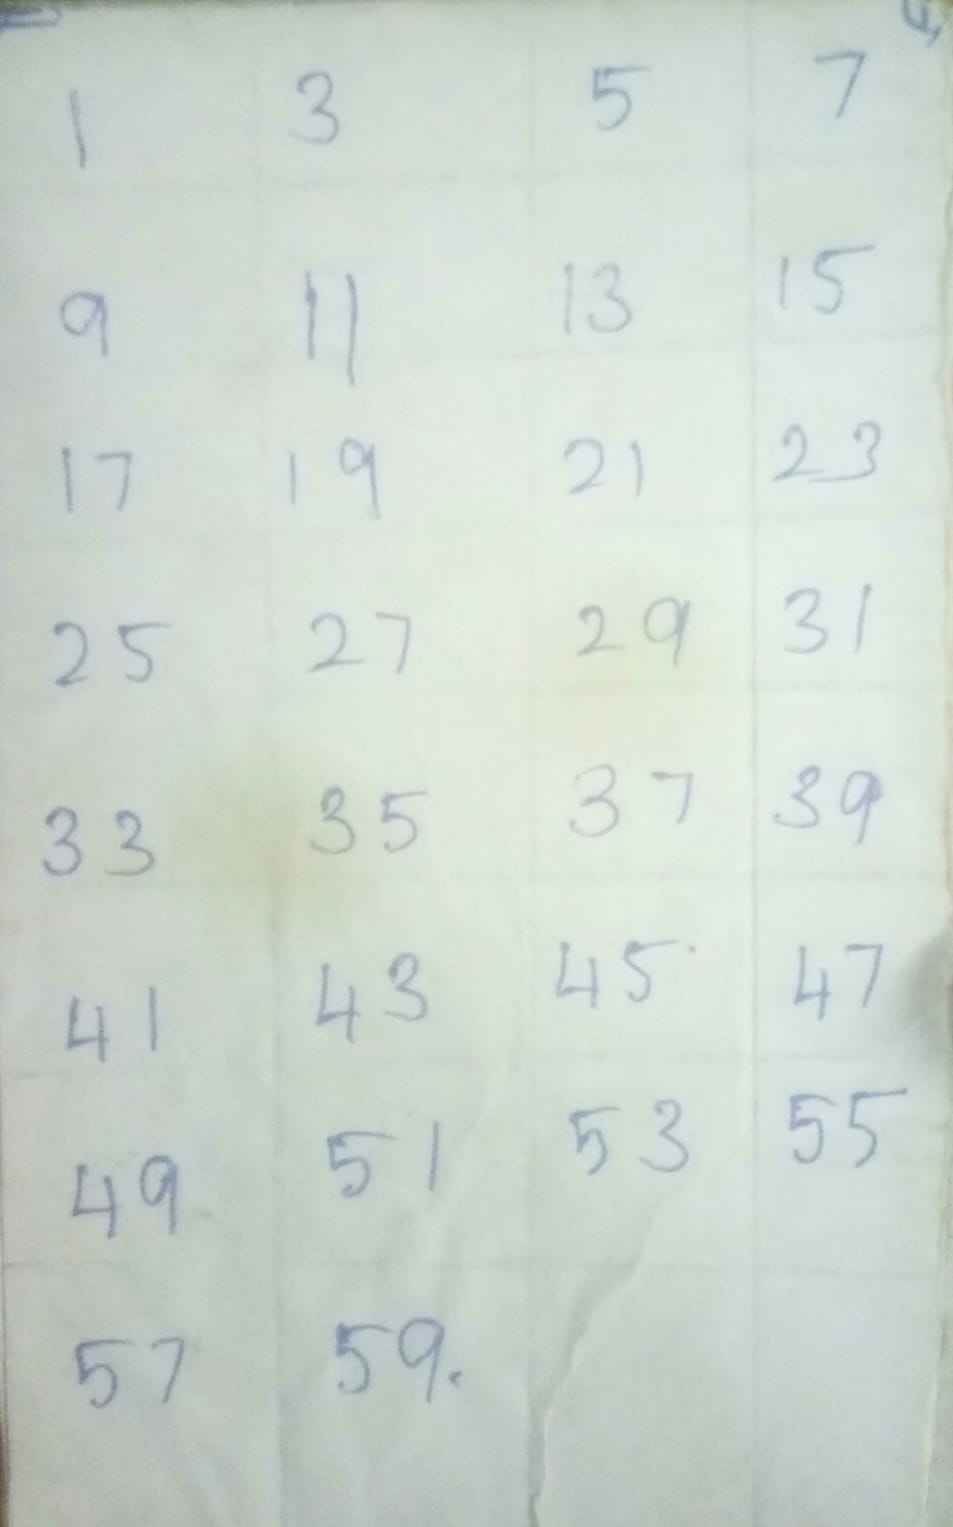 1 3 5 7
9 11 13 15
17 19 21 23
25 27 29 31
33 35 37 39
41 43 45 47
49 51 53 55
57 59.